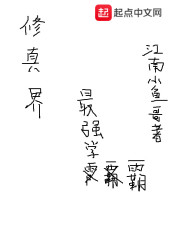 起点中文网
修真界
最强学霸
江南小鱼哥著